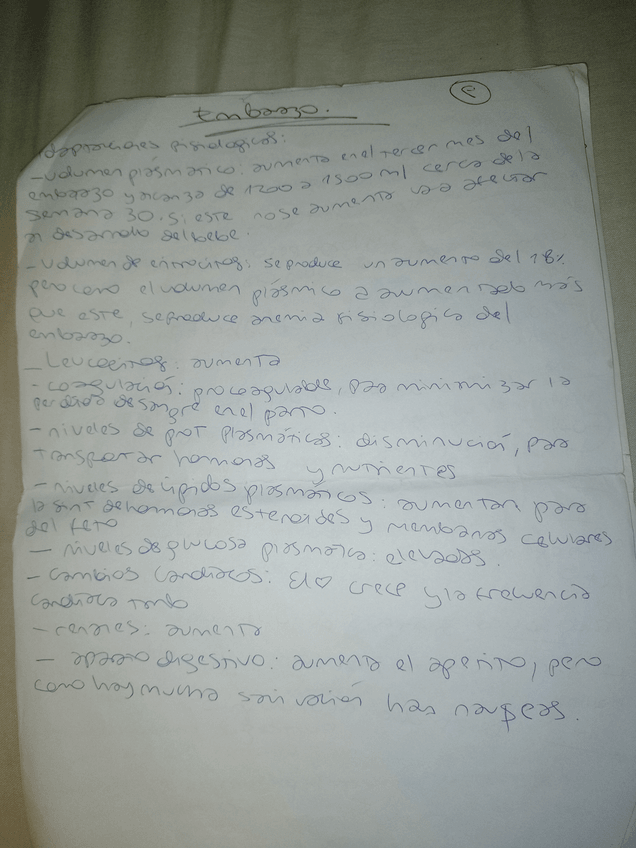 Embarazo.
Adaptaciones fisiologicas:
-volumen plasmático: aumenta en el tercer mes del
embarazo y alcanza de 1200 a 1500 ml cerca de la
semana 30. si este no se aumenta va a afectar
al desarrollo del bebe.
- volumen de eritrocitos: se produce un aumento del 18%
pero como el volumen plásmico a aumentado más
que este, se produce anemia fisiologica del
embarazo.
- Leucocitos: aumenta
- coagulación: procoagulable, para minimizar la
perdida de sangre en el parto.
- niveles de prot plasmáticas: disminución, para
transportar hormonas y nutrientes
- niveles de lipidos plasmáticos: aumentan para
la sint de hormonas esteroides y membranas celulares
del feto
- niveles de glucosa plasmatica: elevadas.
- cambios cardiacos: El ♡ crece y la frecuencia
cardiaca tanto
- renales: aumenta
- aparato digestivo: aumenta el apetito, pero
como hay mucha salivación has nauseas.